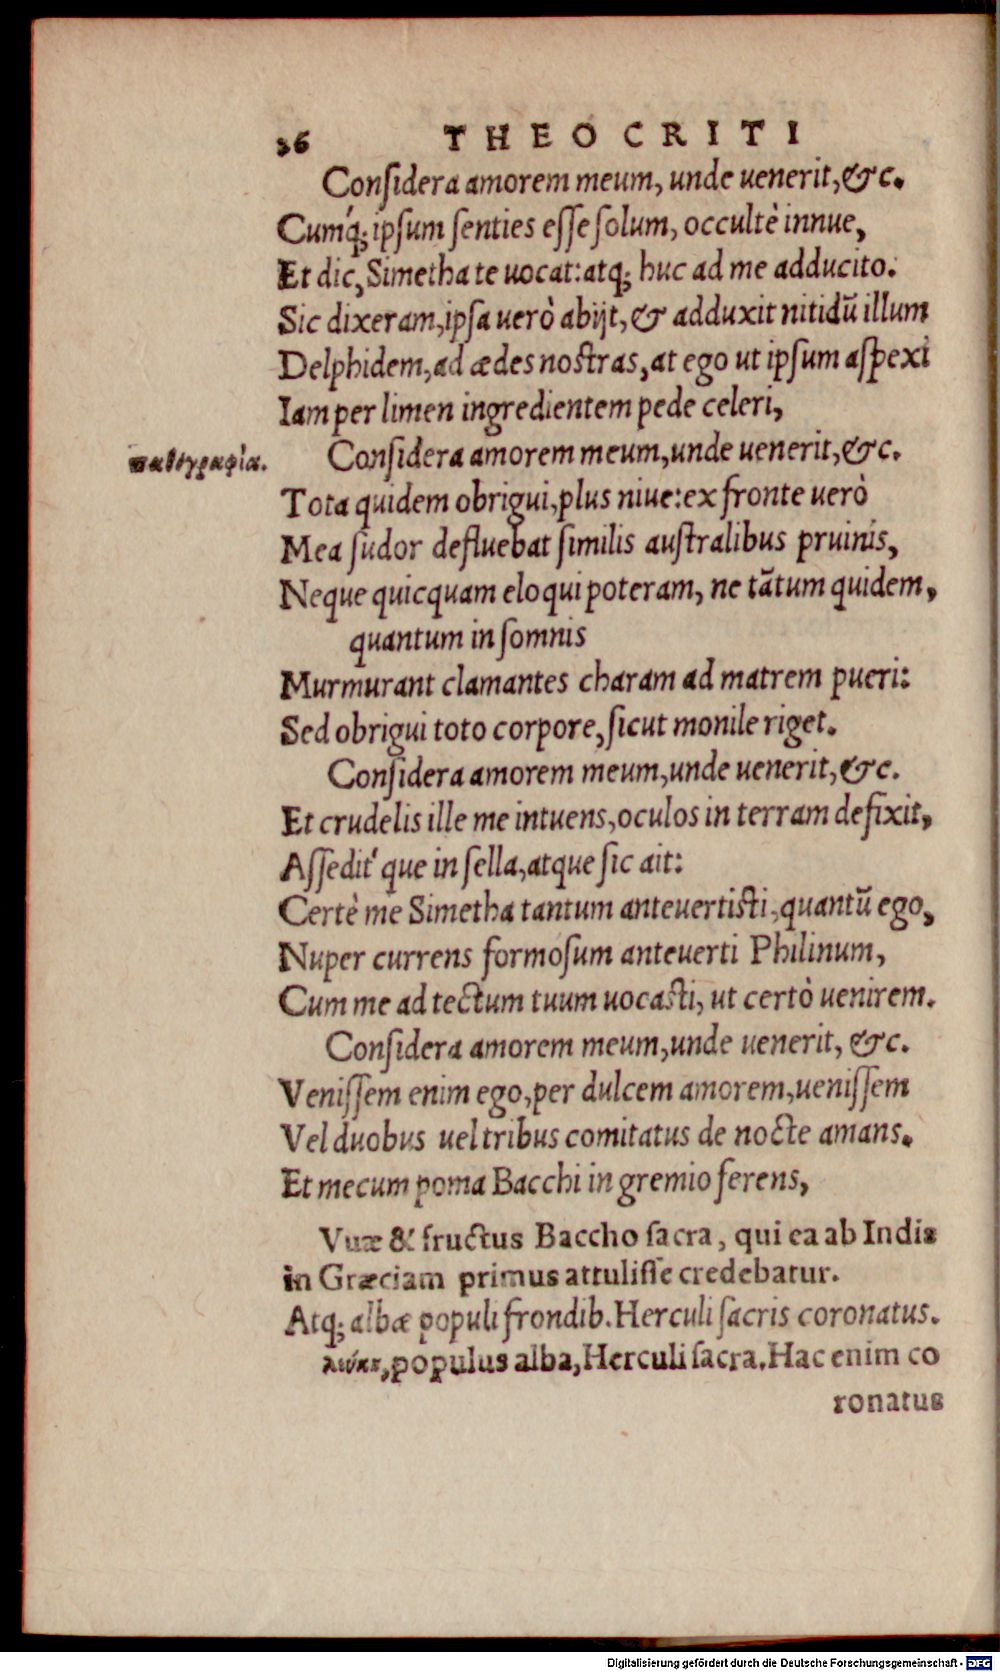 36 THEOCRITI
Conſidera amorem meum, unde uenerit, &c.
Cumq́; ipſum ſenties eſſe ſolum, occultè innue,
Et dic, Simetha te uocat: atq; huc ad me adducito.
Sic dixeram, ipſa uerò abijt, & adduxit nitidũ illum
Delphidem, ad ædes noſtras, at ego ut ipſum aſpexi
Iam per limen ingredientem pede celeri,
παθογραφία. Conſidera amorem meum, unde uenerit, &c.
Tota quidem obrigui, plus niue: ex fronte uerò
Mea ſudor defluebat ſimilis auſtralibus pruinis,
Neque quicquam eloqui poteram, ne tãtum quidem,
quantum in ſomnis
Murmurant clamantes charam ad matrem pueri:
Sed obrigui toto corpore, ſicut monile riget.
Conſidera amorem meum, unde uenerit, &c.
Et crudelis ille me intuens, oculos in terram defixit,
Aſſedit' que in ſella, atque ſic ait:
Certè me Simetha tantum anteuertiſti, quantũ ego,
Nuper currens formoſum anteuerti Philinum,
Cum me ad tectum tuum uocaſti, ut certò uenirem.
Conſidera amorem meum, unde uenerit, &c.
Veniſſem enim ego, per dulcem amorem, ueniſſem
Vel duobus uel tribus comitatus de nocte amans.
Et mecum poma Bacchi in gremio ferens,
Vuæ & fructus Baccho ſacra, qui ea ab Indis
in Græciam primus attuliſſe credebatur.
Atq; albæ populi frondib. Herculi ſacris coronatus.
λεύκη, populus alba, Herculi ſacra. Hac enim co
ronatus
Digitalisierung gefördert durch die Deutsche Forschungsgemeinschaft - DFG